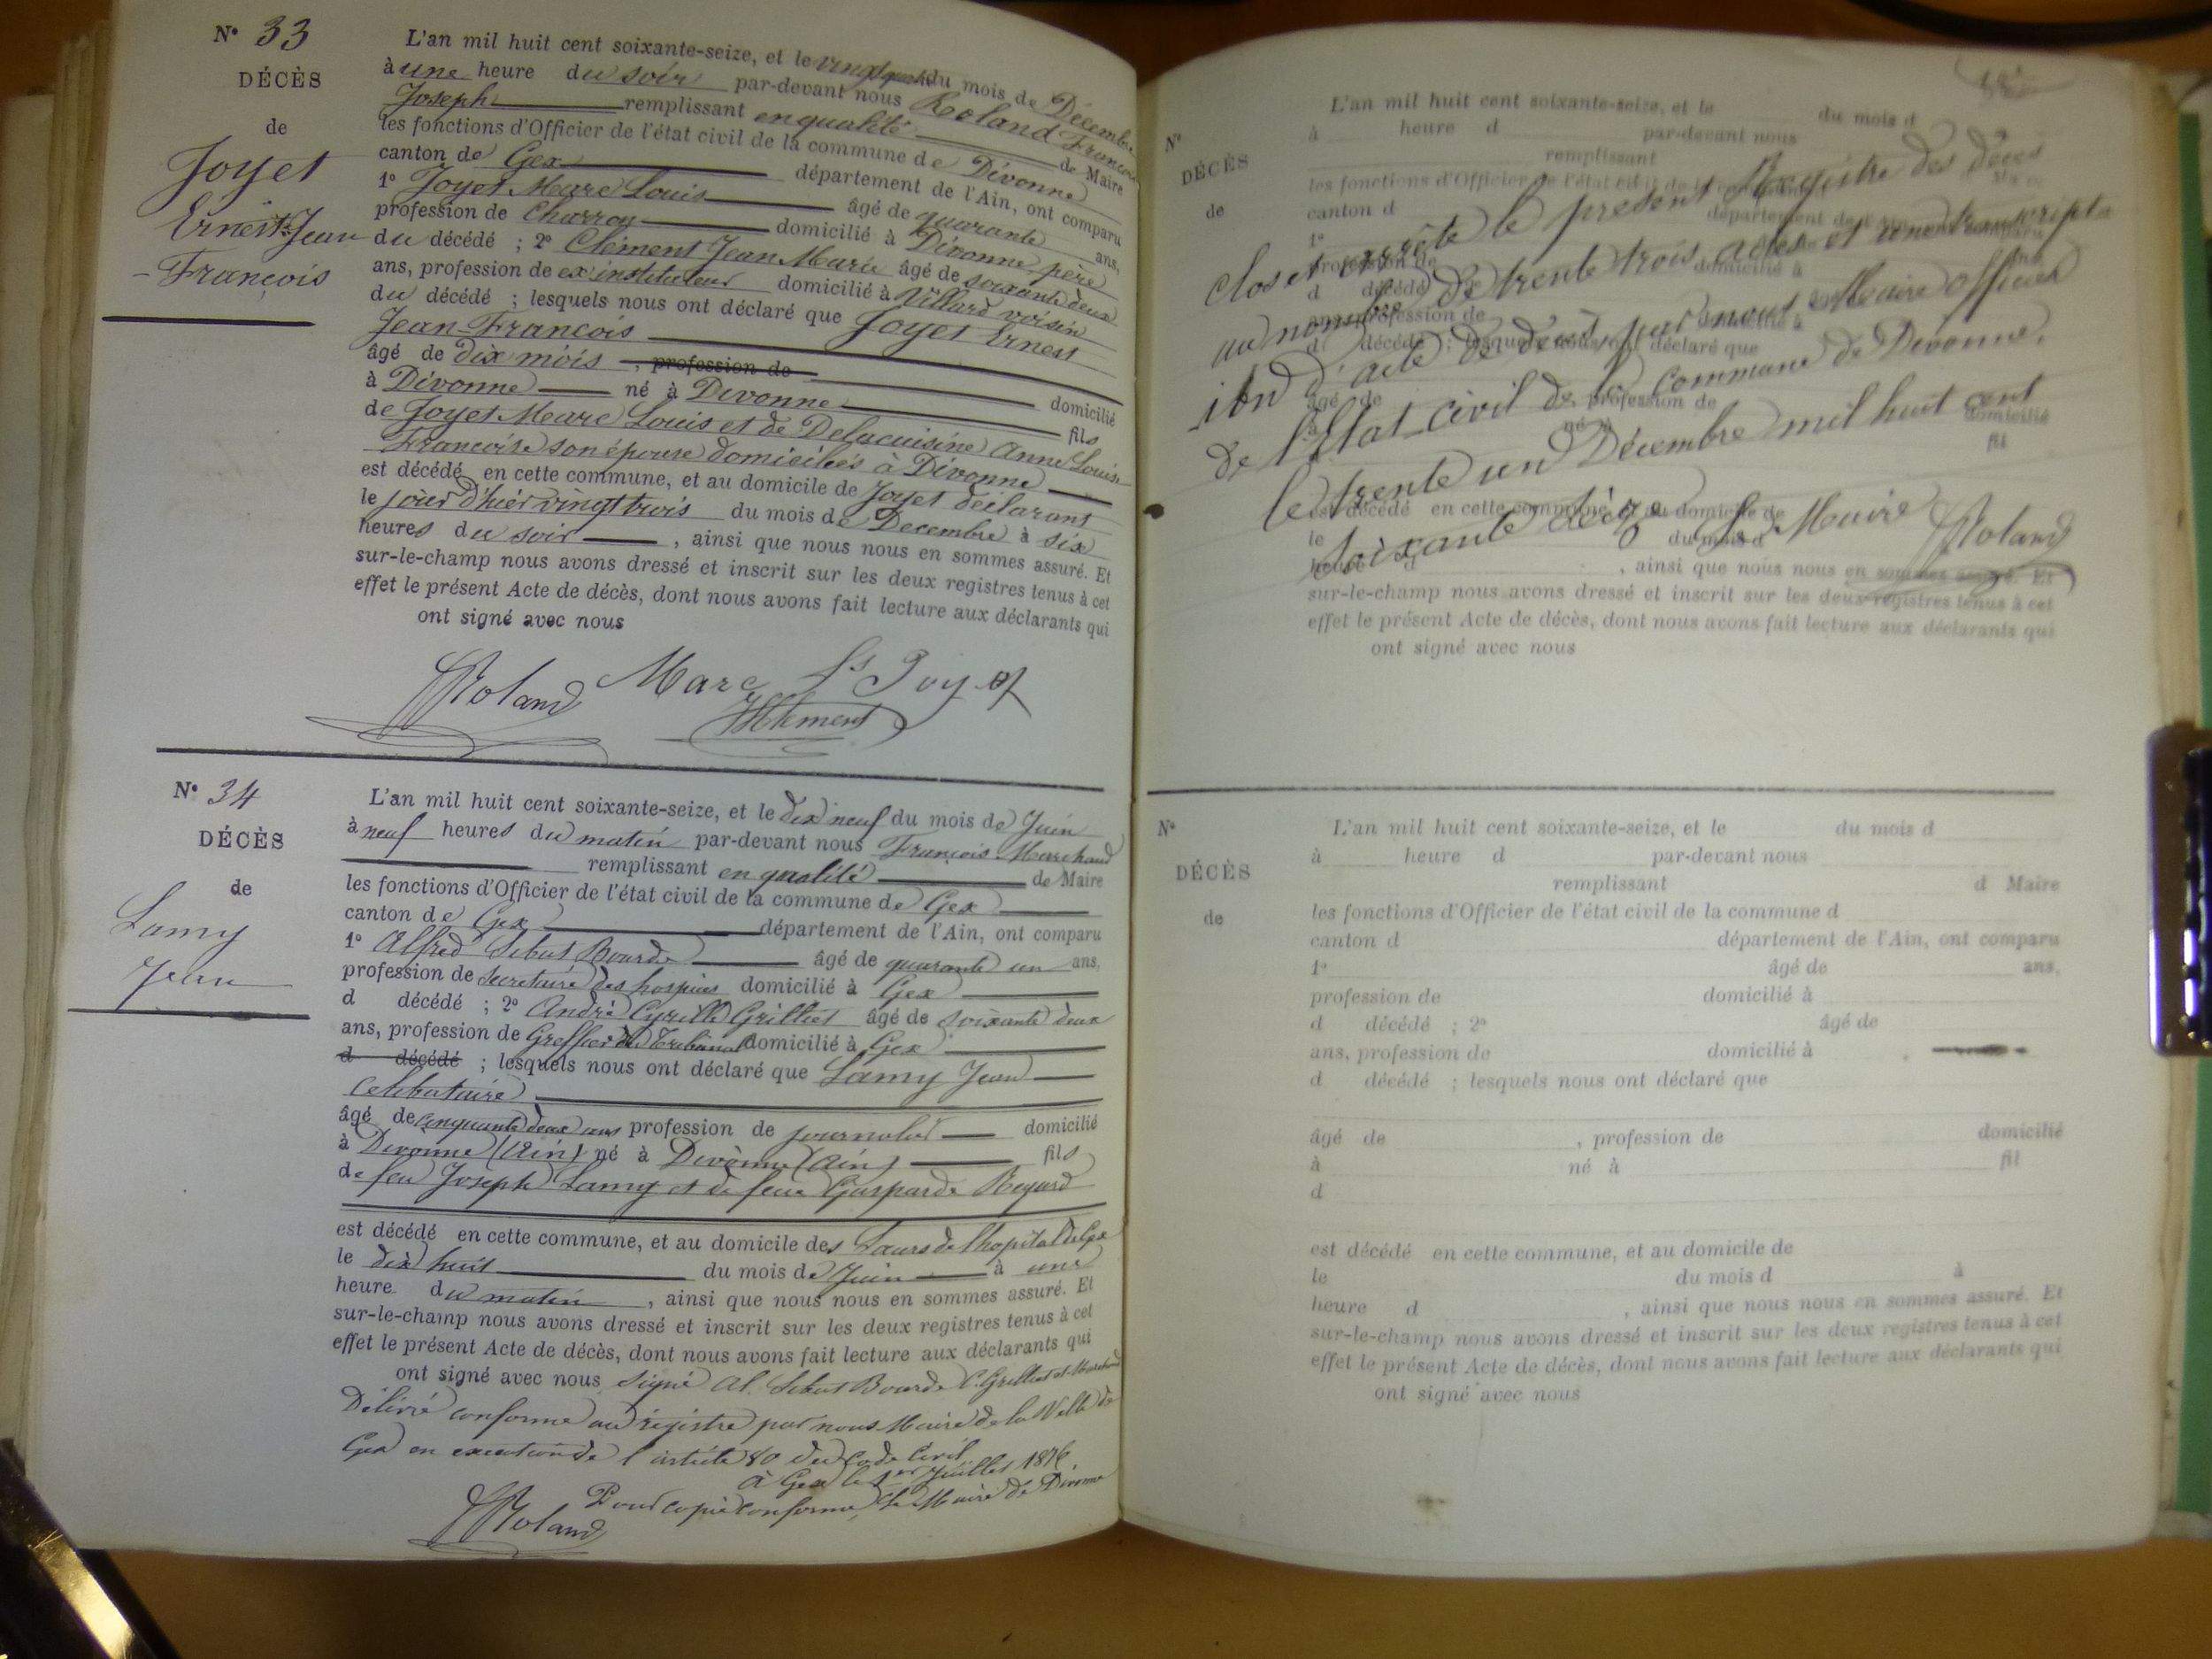 N° 33
DÉCÈS
de
Joyet
Ernest Jean
François
L'an mil huit cent soixante-seize, et le vingt quatre du mois de Décembre
à une heure du soir par-devant nous Roland François
Joseph remplissant en qualité de Maire
les fonctions d'Officier de l'état civil de la commune de Divonne
canton de Gex département de l'Ain, ont comparu
1° Joyet Marc Louis âgé de quarante ans,
profession de Charron domicilié à Divonne père
du décédé ; 2° Clément Jean Marie âgé de soixante deux
ans, profession de ex instituteur domicilié à Villard voisin
du décédé ; lesquels nous ont déclaré que Joyet Ernest
Jean-François
âgé de dix mois , profession de domicilié
à Divonne né à Divonne fils
de Joyet Marc Louis et de Delacuisine Anne Louise
Françoise son épouse domiciliés à Divonne
est décédé en cette commune, et au domicile de Joyet déclarant
le jour d'hier vingt trois du mois de Decembre à six
heures du soir , ainsi que nous nous en sommes assuré. Et
sur-le-champ nous avons dressé et inscrit sur les deux registres tenus à cet
effet le présent Acte de décès, dont nous avons fait lecture aux déclarants qui
ont signé avec nous
Roland Marc Ls Joyet
Clément
N° 34
DÉCÈS
de
Lamy
Jean
L'an mil huit cent soixante-seize, et le dix neuf du mois de Juin
à neuf heures du matin par-devant nous François Marchand
remplissant en qualité de Maire
les fonctions d'Officier de l'état civil de la commune de Gex
canton de Gex département de l'Ain, ont comparu
1° Alfred Sebut Bourde âgé de quarante un ans,
profession de Secretaire des hospices domicilié à Gex
d décédé ; 2° André Cyrille Grilliet âgé de soixante deux
ans, profession de Greffier du Tribunal domicilié à Gex
d décédé ; lesquels nous ont déclaré que Lamy Jean
Celibataire
âgé de cinquante deux ans profession de journalier domicilié
à Divonne (Ain) né à Divonne (Ain) fils
de feu Joseph Lamy et de feue Gasparde Regard
est décédé en cette commune, et au domicile des Sœurs de l'hopital de Gex
le dix huit du mois de Juin à une
heure du matin , ainsi que nous nous en sommes assuré. Et
sur-le-champ nous avons dressé et inscrit sur les deux registres tenus à cet
effet le présent Acte de décès, dont nous avons fait lecture aux déclarants qui
ont signé avec nous signé Al. Sebut Bourde C. Grilliet et Marchand
Délivré conforme au registre par nous Maire de la Ville de
Gex en execution de l'article 80 du Code Civil
à Gex le 1er Juillet 1876.
Pour copie conforme, Le Maire de Divonne
Roland
N°
DÉCÈS
de
L'an mil huit cent soixante-seize, et le du mois d
à heure d par-devant nous
remplissant
les fonctions d'Officier de l'état civil de la commune d
canton d département de l'Ain, ont comparu
Clos et arrêté le présent Registre des Décès
au nombre de trente trois actes et une transcript
ion d'acte de décès, par nous Maire officier
de l'Etat civil de la Commune de Divonne,
le trente un Décembre mil huit cent
soixante seize Le Maire Roland
est décédé en cette commune, et au domicile de
le du mois d
heure , ainsi que nous nous en sommes assuré. Et
sur-le-champ nous avons dressé et inscrit sur les deux registres tenus à cet
effet le présent Acte de décès, dont nous avons fait lecture aux déclarants qui
ont signé avec nous
N°
DÉCÈS
de
L'an mil huit cent soixante-seize, et le du mois d
à heure d par-devant nous
remplissant d Maire
les fonctions d'Officier de l'état civil de la commune d
canton d département de l'Ain, ont comparu
1° âgé de ans,
profession de domicilié à
d décédé ; 2° âgé de
ans, profession de domicilié à
d décédé ; lesquels nous ont déclaré que
âgé de , profession de domicilié
à né à fil
d
est décédé en cette commune, et au domicile de
le du mois d à
heure d , ainsi que nous nous en sommes assuré. Et
sur-le-champ nous avons dressé et inscrit sur les deux registres tenus à cet
effet le présent Acte de décès, dont nous avons fait lecture aux déclarants qui
ont signé avec nous